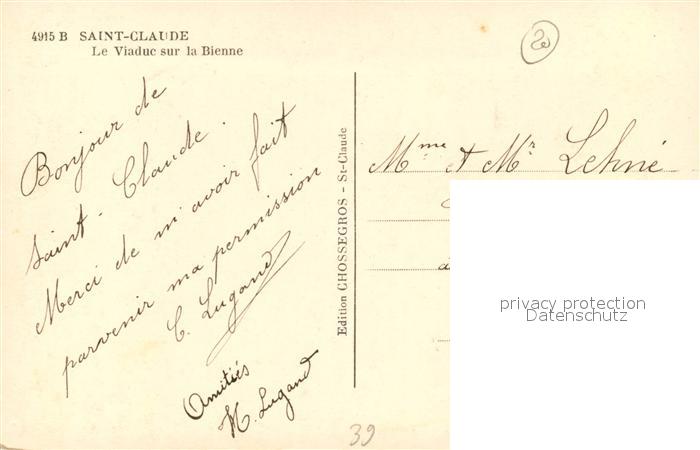 4915 B SAINT-CLAUDE
Le Viaduc sur la Bienne
20
Bonjour de
Saint-Claude.
Merci de m'avoir fait
parvenir ma permission
C. Lugand
Amitiés
M. Lugand
Edition CHOSSEGROS - St-Claude
Mme et Mr Lehné
à
privacy protection
Datenschutz
39